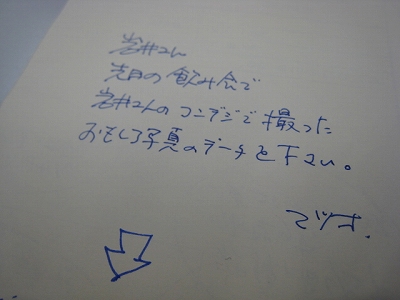 岩井さん
先日の飲み会で
岩井さんのコンデジで撮った
おもしろ写真のデータを下さい。